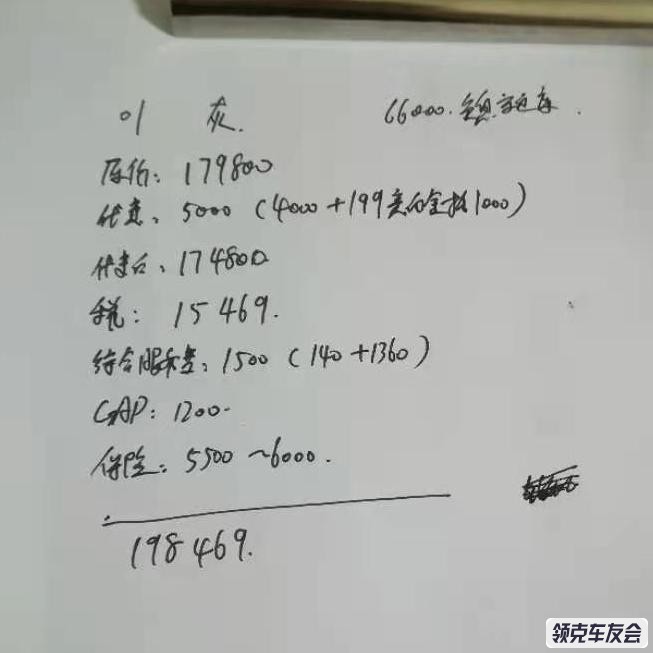 01 灰. 66000.
原价: 179800
优惠: 5000 (4000+199卖的金抵1000)
优惠后: 174800
税: 15469.
综合服务费: 1500 (140+1360)
GAP: 1200.
保险: 5500~6000.
198469.
领克车友会